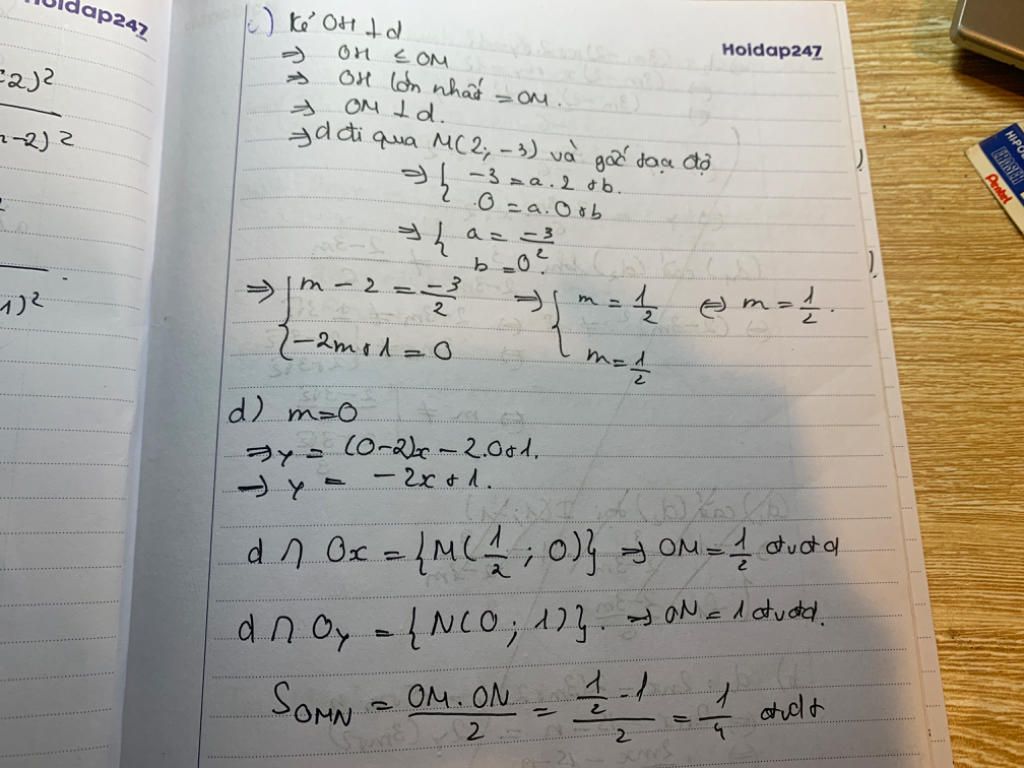 Hoidap247
-2)²
n-2)²
1)²
Hoidap247
HIPO
Pentel
c) Kẻ OH ⊥ d
⇒ OH ≤ OM
⇒ OH lớn nhất = OM.
⇒ OM ⊥ d.
⇒ d đi qua M(2; -3) và gốc tọa độ
⇒ { -3 = a.2 + b.
0 = a.0 + b
⇒ { a = -3/2
b = 0.
⇒ { m - 2 = -3/2 ⇒ { m = 1/2 ⇔ m = 1/2.
-2m + 1 = 0 m = 1/2
d) m = 0
⇒ y = (0-2)x - 2.0 + 1.
→ y = -2x + 1.
d ∩ Ox = {M(1/2 ; 0)} ⇒ OM = 1/2 đvđd
d ∩ Oy = {N(0 ; 1)}. ⇒ ON = 1 đvđd.
S_OMN = OM.ON/2 = (1/2 - 1)/2 = 1/4 đvdt